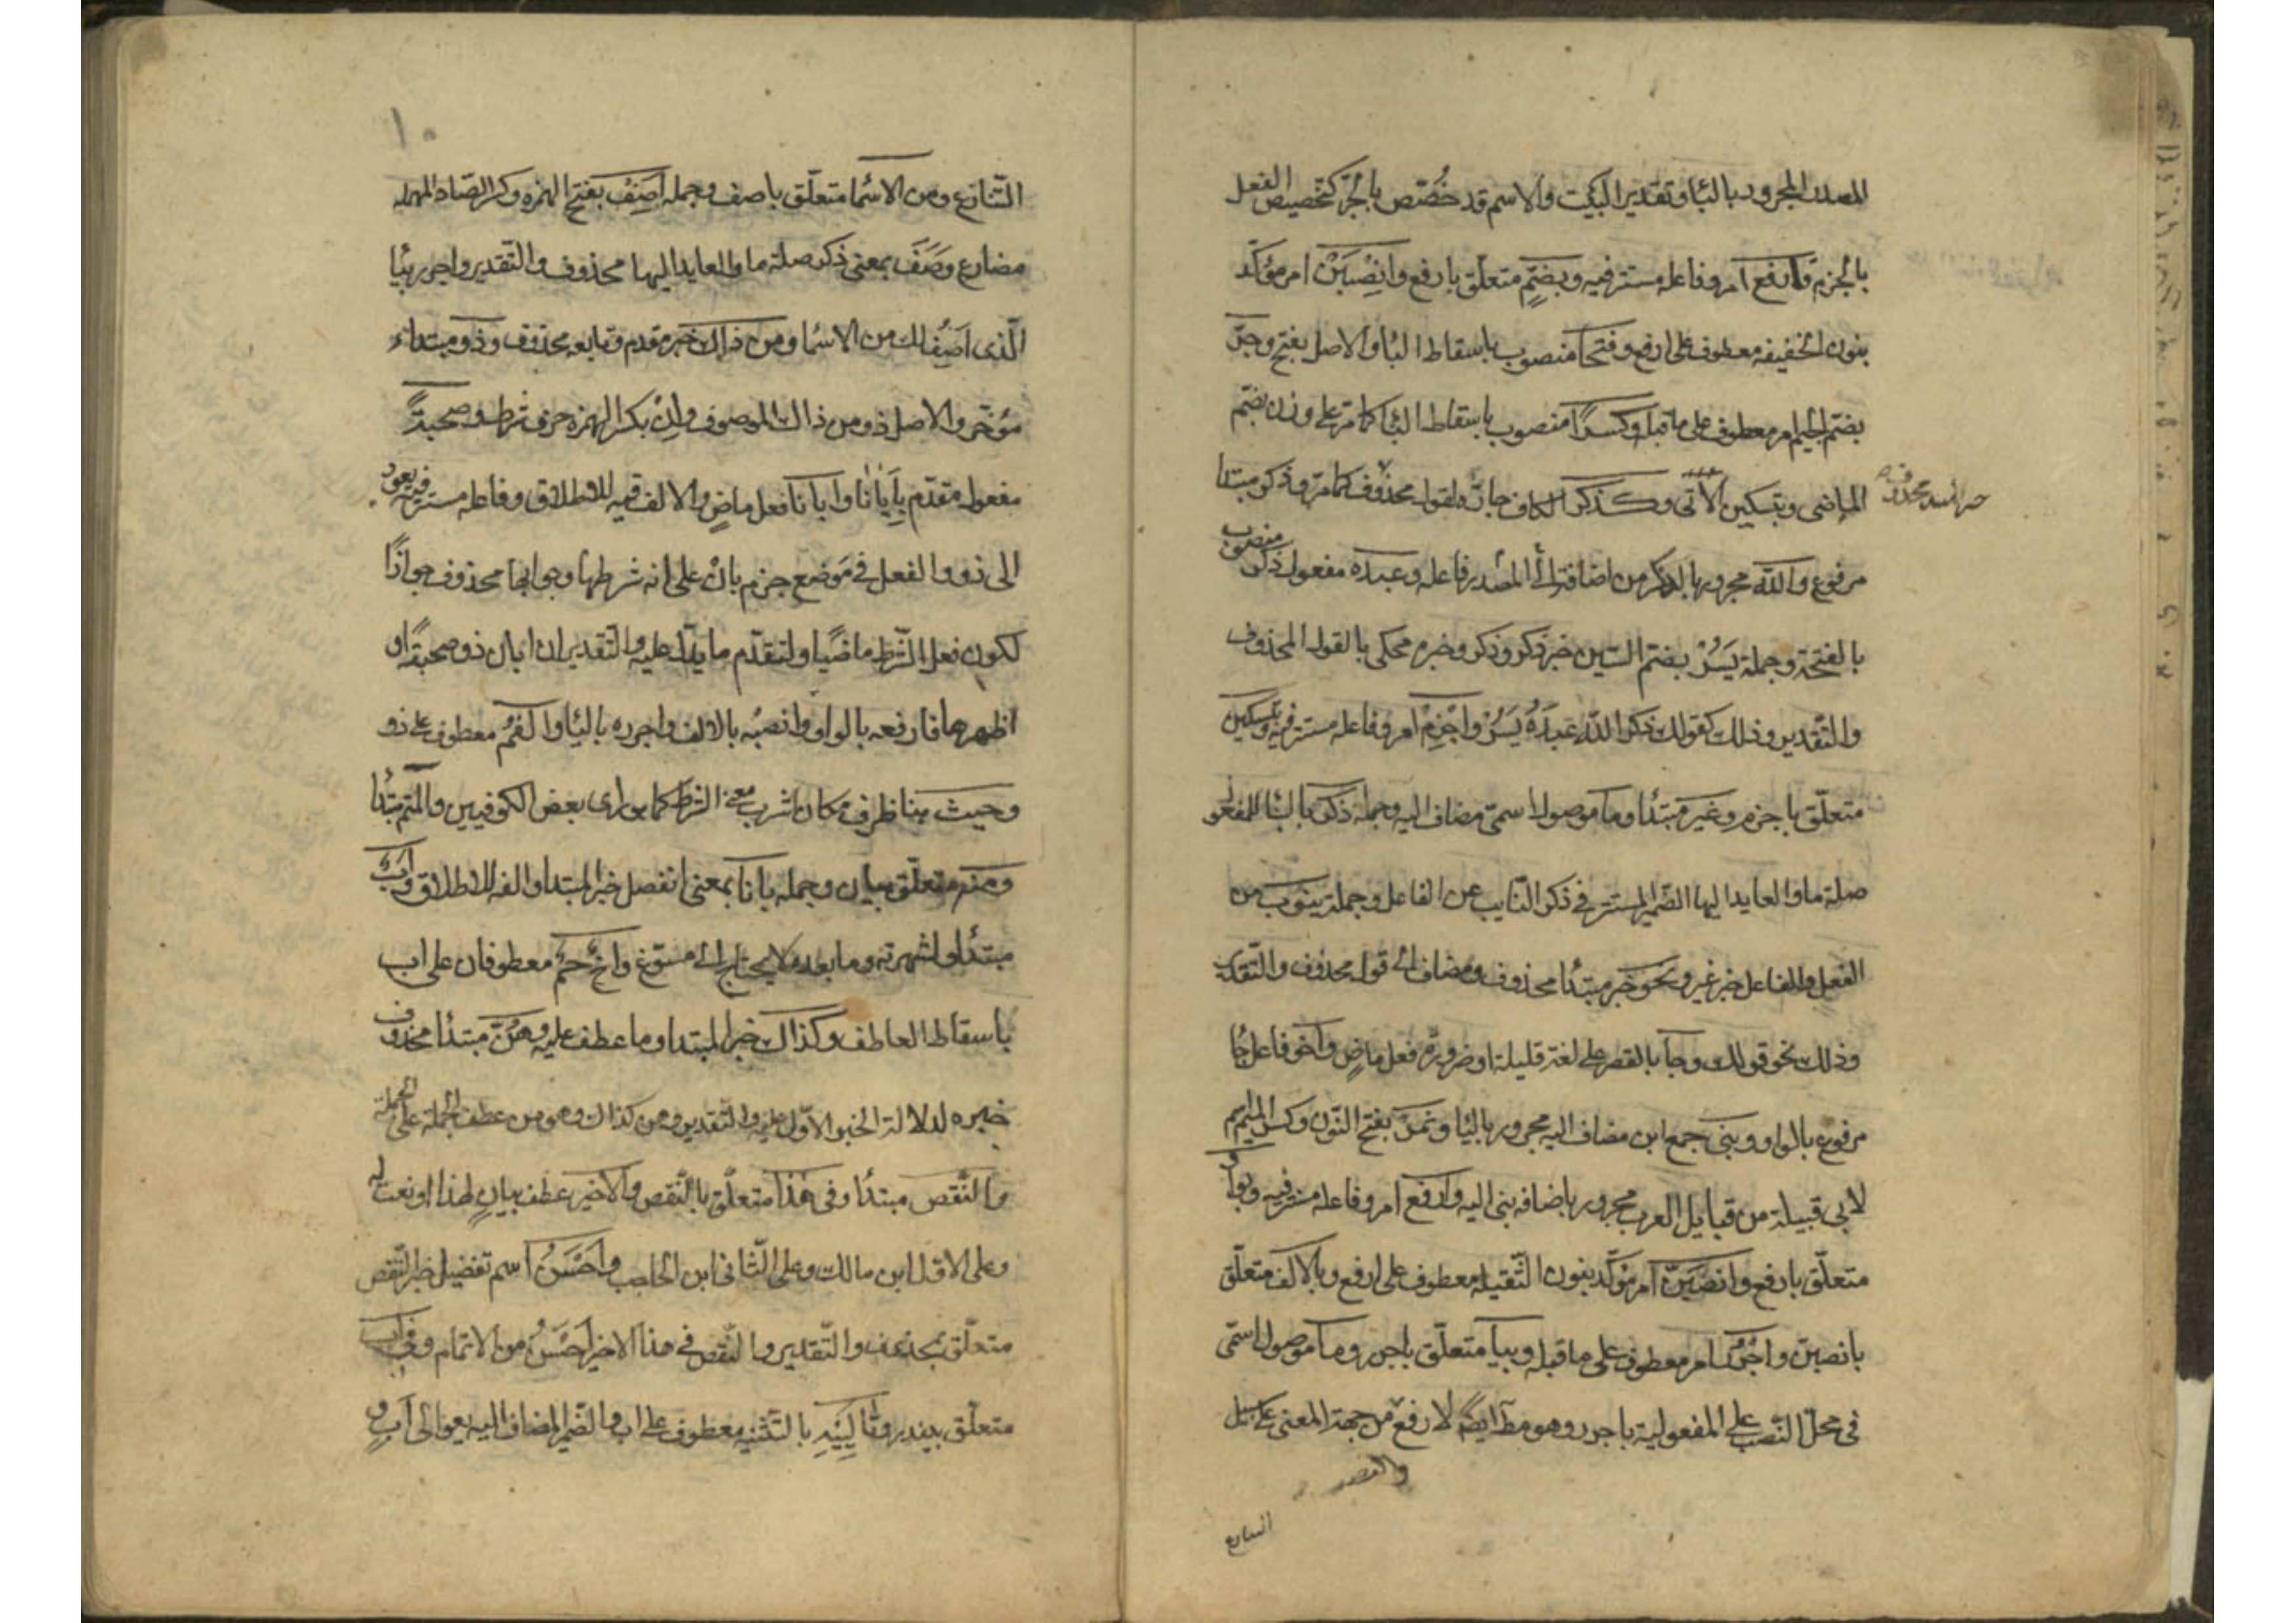 المصدر المجرور بالبا وتقدير البيت والاسم قد خُصّص بالجرّ كتخصيص الفعل
بالجزم فارفع امر وفاعله مستتر فيه وبضمٍّ متعلّق بارفع وانصِبَنْ امر مؤكّد
بنون الخفيفه معطوف على ارفع وفتحًا منصوب باسقاط البا والاصل بفتح وجُرّ
بضمّ الجيم امر معطوف على ما قبله وكسرًا منصوب باسقاط البا كما مر على وزن بضم
الماضى وبتسكين الآتى وكذكر الكاف جارّة لقول محذوف كما مرّ وذكر مبتدا
مرفوع والله مجرور بالذكر من اضافة المصدر لفاعله وعبده مفعول ذكر منصوب
بالفتحة وجملة يَسُرْ بضمّ السين خبر ذكر وذكر وخبره محكى بالقول المحذوف
والتّقدير وذلك كقولك ذكر الله عبدَهُ يَسُرْ واجْزِمْ امر وفاعله مستتر فيه وبتسكين
متعلّق باجزم وغير مبتدأ وما موصول اسمىّ مضاف اليه وجملة ذكر بالبنا للمفعول
صلة ما والعايد اليها الضّمير المستتر فى ذكر النّايب عن الفاعل وجملة ينوب من
الفعل والفاعل خبر غير ونحو خبر مبتدأ محذوف ومضاف الى قول محذوف والتّقدير
وذلك نحو قولك وجا بالقصر على لغة قليلة او ضرورة فعل ماضٍ واخو فاعل جُا
مرفوع بالواو وبنى جمع ابن مضاف اليه مجرور باليا ونمرَ بفتح النّون وكسر الميم اسم
لابى قبيلة من قبايل العرب مجرور باضافه بنى اليه وارفع امر وفاعله مستتر فيه وبواو
متعلّق بارفع وانصبَنّ امر مؤكّد بنون الثّقيله معطوف على ارفع وبالالف متعلّق
بانصبن واجرُر امر معطوف على ما قبله وبيا متعلّق باجرر وما موصول اسمىّ
فى محلّ النّصب على المفعولية باجرر وهو مطلوب ايضًا لارفع من جهة المعنى على سبيل
التنازع
خبر المبتدا محذوف
١٠
التّنازع ومن الاسما متعلّق باصف وجمله اَصِفُ بفتح الهمزه وكسر الصّاد المهمله
مضارع وَصَفَ بمعنى ذكر صلة ما والعايد اليها محذوف والتّقدير واجرر بيا
الّذى اَصِفُه لك من الاسما ومن ذاك خبر مقدم وتابعه محذوف وذو مبتداء
مؤخّر والاصل ذو من ذاك الموصوف واِنْ بكسر الهمزه حرف شرط وصحبةً
مفعول مقدّم بِاَبانا وابانا فعل ماضٍ والالف فيه للاطلاق وفاعله مستتر فيه يعود
الى ذو والفعل فى موضع جزم بانْ على انه شرطها وجوابها محذوف جوازًا
لكون فعل الشّرط ماضيًا ولتقدّم ما يدلّ عليه والتّقدير ان ابان ذو صحبةً او
اظهرها فارفعه بالواو وانصبْه بالالف واجرره باليا والفَمُ معطوف على ذو
وحيث هنا ظرف مكان اشرب معنى الشّرط كما هو راى بعض الكوفيين والميم مبتدُا
ومنه متعلّق ببان وجمله بانا بمعنى انفصل خبر المبتدا والفه للاطلاق وابٌ
مبتدأ ولشهرته وما بعده لا يحتاج الى مسوّغ واخٌ حمٌ معطوفان على اب
باسقاط العاطف وكذاك خبر المبتدا وما عطف عليه وهَنٌ مبتدأ محذوف
خبره لدلالة الخبر الاوّل عليه والتّقدير وهن كذاك وهو من عطف الجملة على الجملة
والنّقص مبتدأ وفى هذا متعلّق بالنّقص والاخير عطف بيانٍ لهذا او نعت له
وعلى الاوّل ابن مالك وعلى الثّانى ابن الحاجب واَحْسَنُ اسم تفضيل خبر النّقص
متعلّق بمحذوف والتّقدير والنّقص فى هذا الاخير احسَنُ من الاتمام وفى ابٍ
متعلّق بيندر وتَالِيَيْهِ بالتّثنيه معطوف على اب والضّمير المضاف اليه يعود الى اَبٍ و